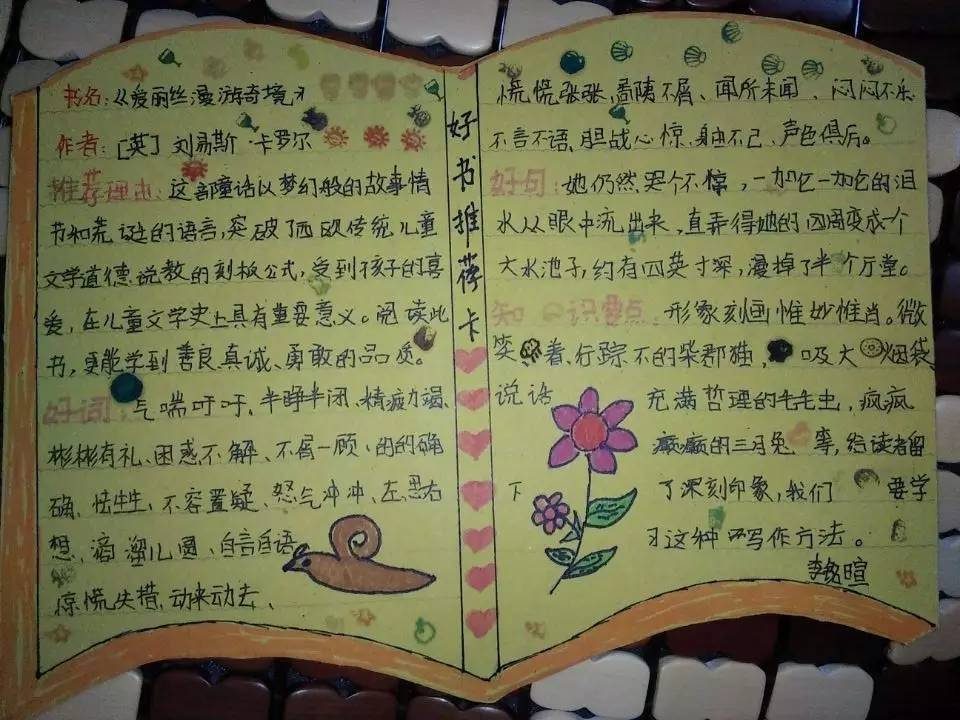 书名:《爱丽丝漫游奇境》
作者:[英]刘易斯·卡罗尔
推荐理由:这部童话以梦幻般的故事情
节和荒诞的语言,突破了西欧传统儿童
文学道德说教的刻板公式,受到孩子的喜
爱,在儿童文学史上具有重要意义。阅读此
书,更能学到善良、真诚、勇敢的品质。
好词:气喘吁吁、半睁半闭、精疲力竭、
彬彬有礼、困惑不解、不屑一顾、的的确
确、怯生生、不容置疑、怒气冲冲、左思右
想、滴溜儿圆、自言自语
惊慌失措、动来动去、
好书推荐卡
慌慌张张、鄙陋不屑、闻所未闻、闷闷不乐
不言不语、胆战心惊、身由不己、声色俱厉。
好句:她仍然哭个不惊,一加仑一加仑的泪
水从眼中流出来,直弄得她的四周变成一个
大水池子,约有四英寸深,漫掉了半个厅堂。
知识要点:形象刻画惟妙惟肖。微
笑着、行踪不的柴郡猫,吸大烟袋
说话充满哲理的毛毛虫,疯疯
癫癫的三月兔等,给读者留
下了深刻印象,我们要学
习这种写作方法。